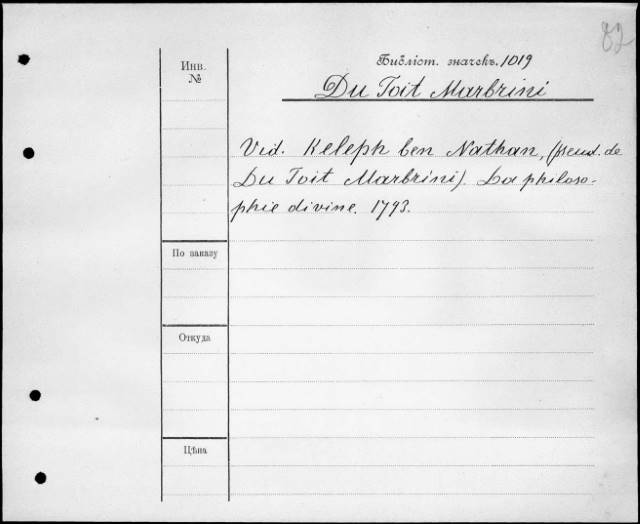 82
Инв.
№
Библіот. значекъ. 1019
Du Toit Marbrini
Vid. Keleph ben Nathan, (pseud. de
Du Toit Marbrini). La philoso-
phie divine. 1793.
По заказу
Откуда
Цѣна